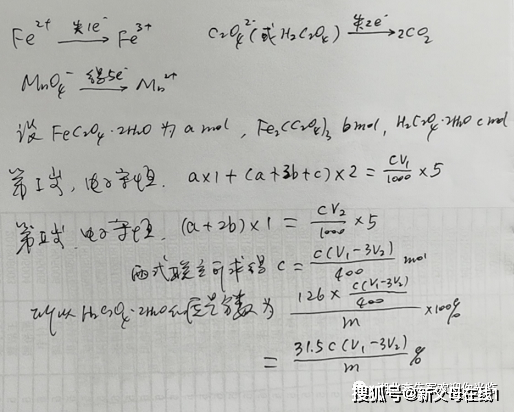 Fe²⁺ —失1e⁻→ Fe³⁺ C₂O₄²⁻(或H₂C₂O₄) —失2e⁻→ 2CO₂
MnO₄⁻ —得5e⁻→ Mn²⁺
设 FeC₂O₄·2H₂O 为 a mol , Fe₂(C₂O₄)₃ b mol, H₂C₂O₄·2H₂O c mol
第I步, 电子守恒. a×1 + (a+3b+c)×2 = CV₁/1000 ×5
第II步. 电子守恒. (a+2b)×1 = CV₂/1000 ×5
两式联立可求得 c = C(V₁-3V₂)/400 mol
所以 H₂C₂O₄·2H₂O 的质量分数为 126× C(V₁-3V₂)/400 / m ×100%
= 31.5C(V₁-3V₂)/m %
搜狐号@新父母在线1